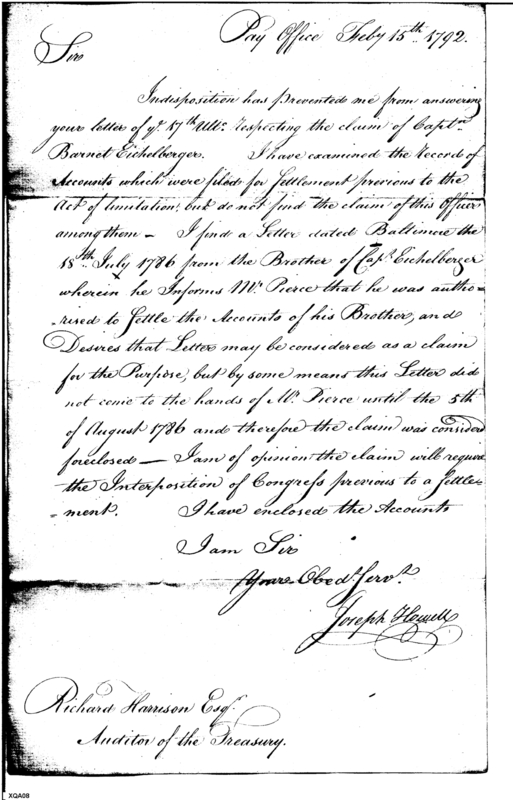 Pay Office Feby 15th 1792.
Sir
Indisposition has prevented me from answering
your letter of ye 17th Ulto respecting the claim of Captn
Barnet Eichelberger. I have examined the Record of
Accounts which were filed for Settlement previous to the
Act of limitation, but do not find the claim of this Officer
among them — I find a Letter dated Baltimore the
18th July 1786 from the Brother of Capt Eichelberger
wherein he Informs Mr Pierce that he was autho-
-rized to Settle the Accounts of his Brother, and
Desires that Letter may be considered as a claim
for the Purpose, but by some means this Letter did
not come to the hands of Mr Pierce until the 5th
of August 1786 and therefore the claim was considerd
foreclosed — I am of opinion the claim will require
the Interposition of Congress previous to a Settle-
-ment. I have enclosed the Accounts
I am Sir
Your Obedt Servt
Joseph Howell
Richard Harrison Esqr
Auditor of the Treasury.
XQA08